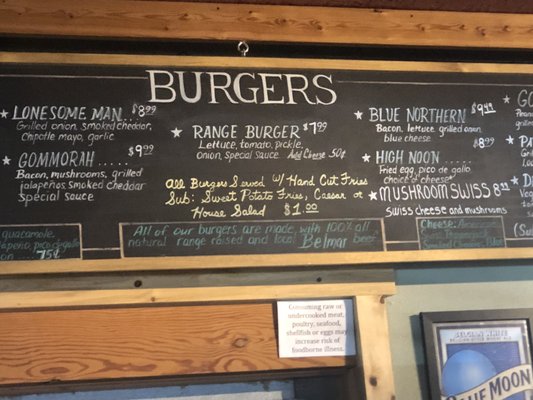 BURGERS
LONESOME MAN... $8.99
Grilled onion, smoked cheddar,
Chipotle mayo, garlic
GOMMORAH..... $9.99
Bacon, mushrooms, grilled
jalapeños, smoked cheddar
special sauce
RANGE BURGER $7.99
Lettuce, tomato, pickle,
onion, special sauce. Add Cheese .50¢
All Burgers Served w/ Hand Cut Fries
Sub: Sweet Potato Fries, Caesar or
House Salad $1.00
BLUE NORTHERN... $9.49
Bacon, lettuce, grilled onion,
blue cheese
HIGH NOON..... $8.99
Fried egg, pico de gallo
choice o' cheeses
MUSHROOM SWISS 8.
Swiss cheese and mushrooms
guacamole,
jalapeño pico de gallo
... 75¢
All of our burgers are made with 100% all
natural range raised and local Belmar beef
Cheese:
Consuming raw or
undercooked meat,
poultry, seafood,
shellfish or eggs may
increase risk of
foodborne illness.
BELGIAN WHITE
BLUE MOON